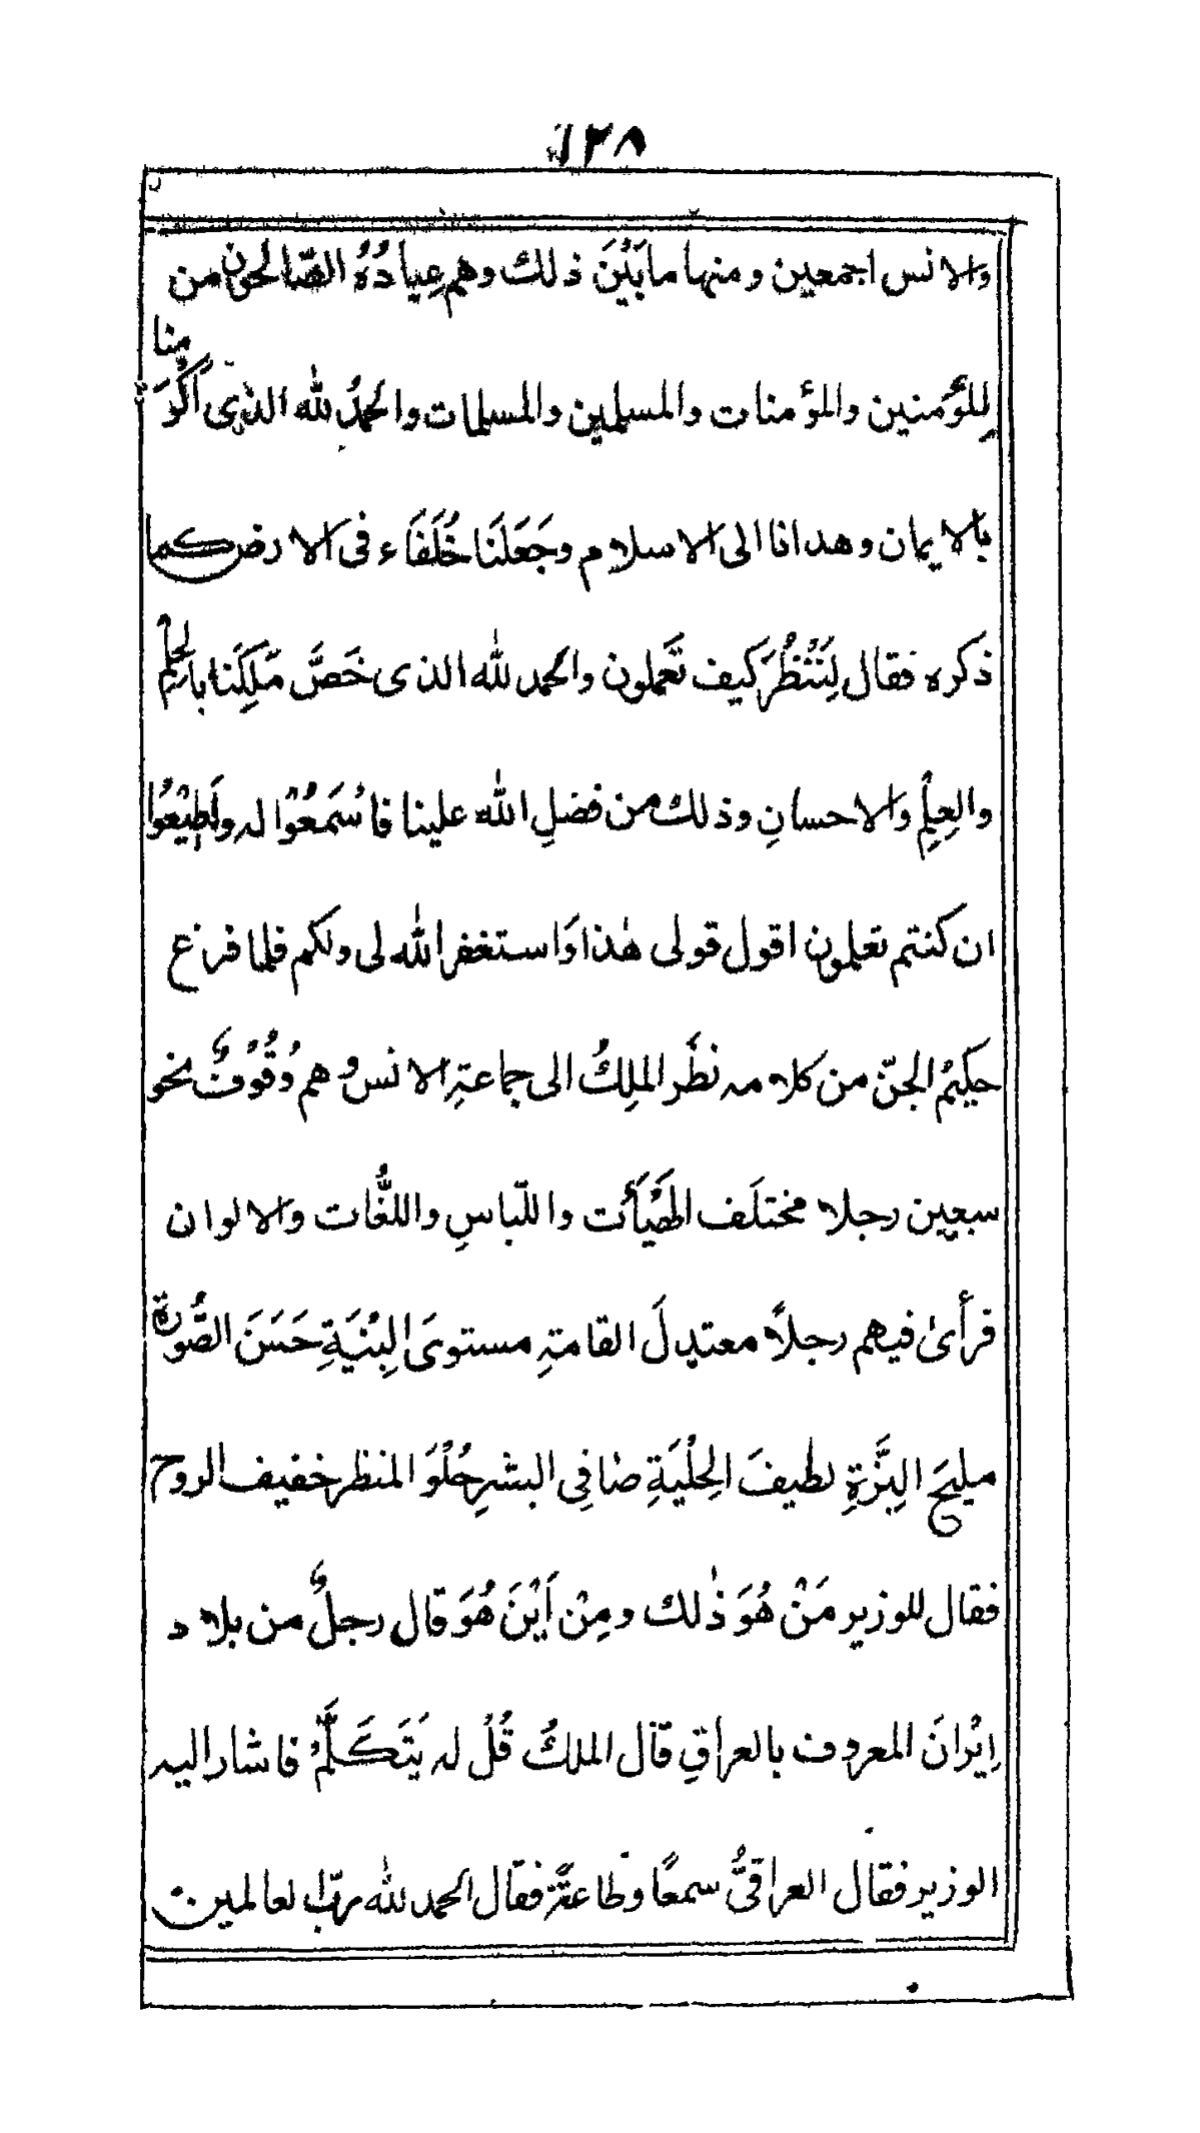 ١٢٨
والانس اجمعين ومنها مابَيْنَ ذلك وهم عِبادُهُ الصّالحون من
لِلمؤمنين والمؤمنات والمسلمين والمسلمات والحمدُ لله الذى اَكْرَمنا
بالايمان وهدانا الى الاسلام وجَعَلَنَا خُلَفَاء فى الارض كما
ذكره فقال لِنَنْظُرَ كيف تَعملون والحمد لله الذى خَصَّ مَلِكَنا بالحلم
والعِلمِ والاحسانِ وذلك من فضلِ الله علينا فاسْمَعُوْا له وَاطِيْعُوْا
ان كنتم تعلمون اقول قولى هٰذا وَاستغفر الله لى ولكم فلما فرغ
حكيمُ الجنّ من كلامه نظَر الملِكُ الى جماعةِ الانس وهم وُقُوْفٌ نحو
سبعين رجلا مختلَف الهَيْأَت واللّباسِ واللغُّات والالوان
فرأىٰ فيهم رجلاً معتدِلَ القامةِ مستوىَ البِنْيَةِ حَسَنَ الصُّورة
مليحَ البِزَّةِ لطيفَ الحِلْيَةِ صافِى البشرِ حُلْوَ المنظر خفيف الروح
فقال للوزير مَنْ هُوَ ذٰلك ومِنْ اَيْنَ هُوَ قال رجلٌ من بلاد
اِيْرانَ المعروف بالعراقِ قال الملكُ قُلْ له يَتَكَلَّمْ فاشار اليه
الوزير فقال العراقىُّ سمعًا وطاعةً فقال الحمد لله ربّ العالمين